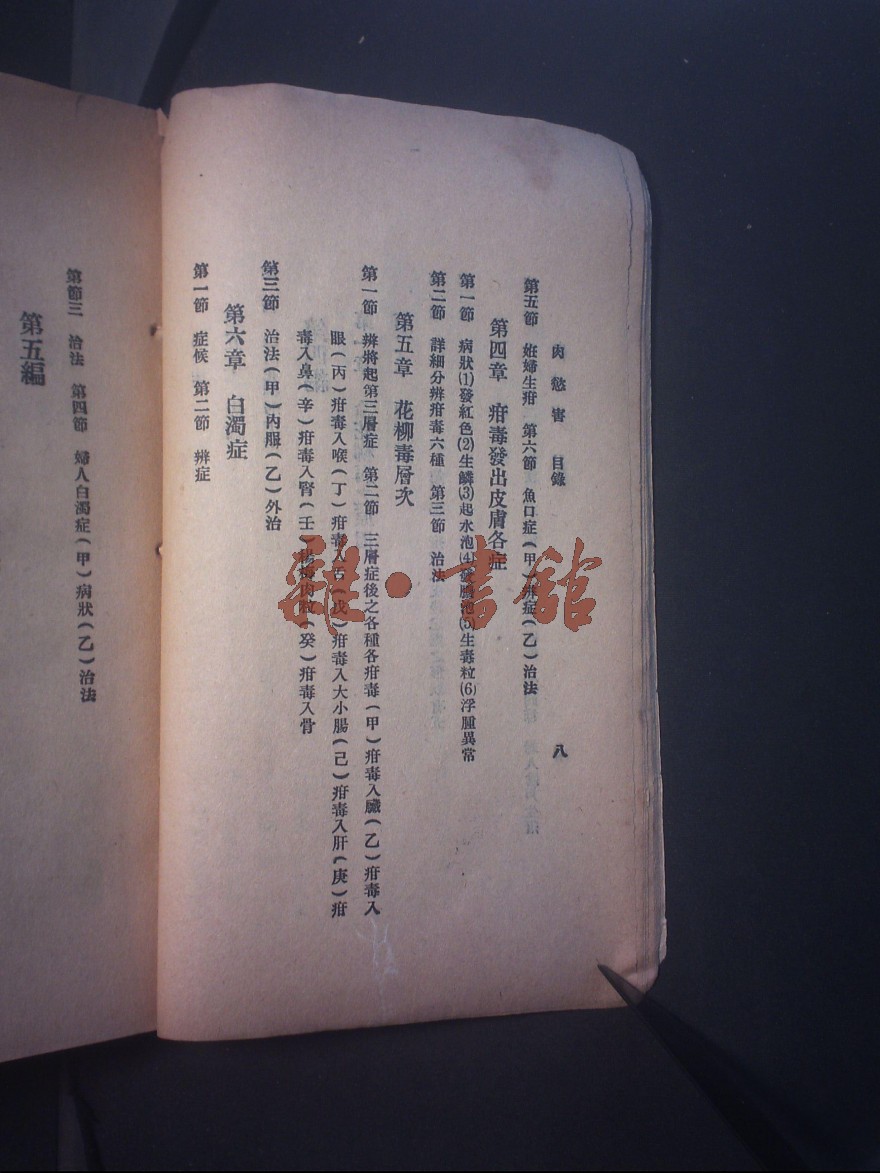 肉慾害 目錄 八
第五節 妊婦生疳 第六節 魚口症(甲)辨症(乙)治法
第四章 疳毒發出皮膚各症
第一節 病狀(1)發紅色(2)生鱗(3)起水泡(4)發膿泡(5)生毒粒(6)浮腫異常
第二節 詳細分辨疳毒六種 第三節 治法
第五章 花柳毒層次
第一節 辨將起第三層症 第二節 三層症後之各種各疳毒(甲)疳毒入臟(乙)疳毒入
眼(丙)疳毒入喉(丁)疳毒入舌(戊)疳毒入大小腸(己)疳毒入肝(庚)疳
毒入鼻(辛)疳毒入腎(壬)楊梅肉粒(癸)疳毒入骨
第三節 治法(甲)內服(乙)外治
第六章 白濁症
第一節 症候 第二節 辨症
第節三 治法 第四節 婦人白濁症(甲)病狀(乙)治法
第五編
雜·書館